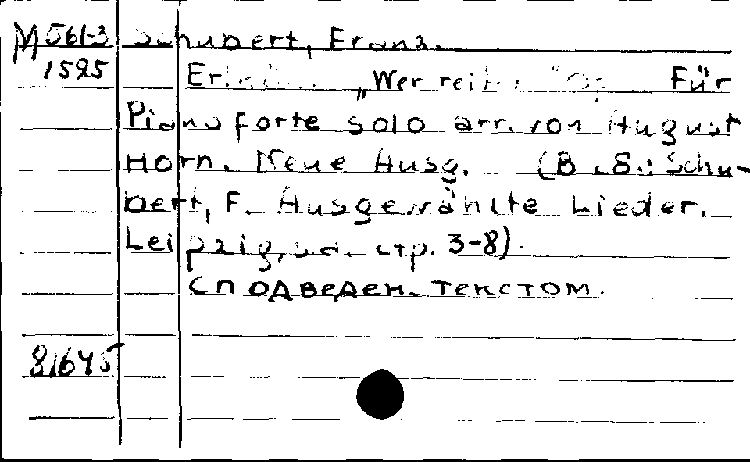 М 561-3 Schubert, Franz.
1595 Erlk... „Wer reit... Für
Pianoforte solo arr. von August
Horn. Neue Ausg. (В кн.: Schu-
bert, F. Ausgewählte Lieder.
Leipzig, s.a. стр. 3-8).
С подведен. текстом.
81645